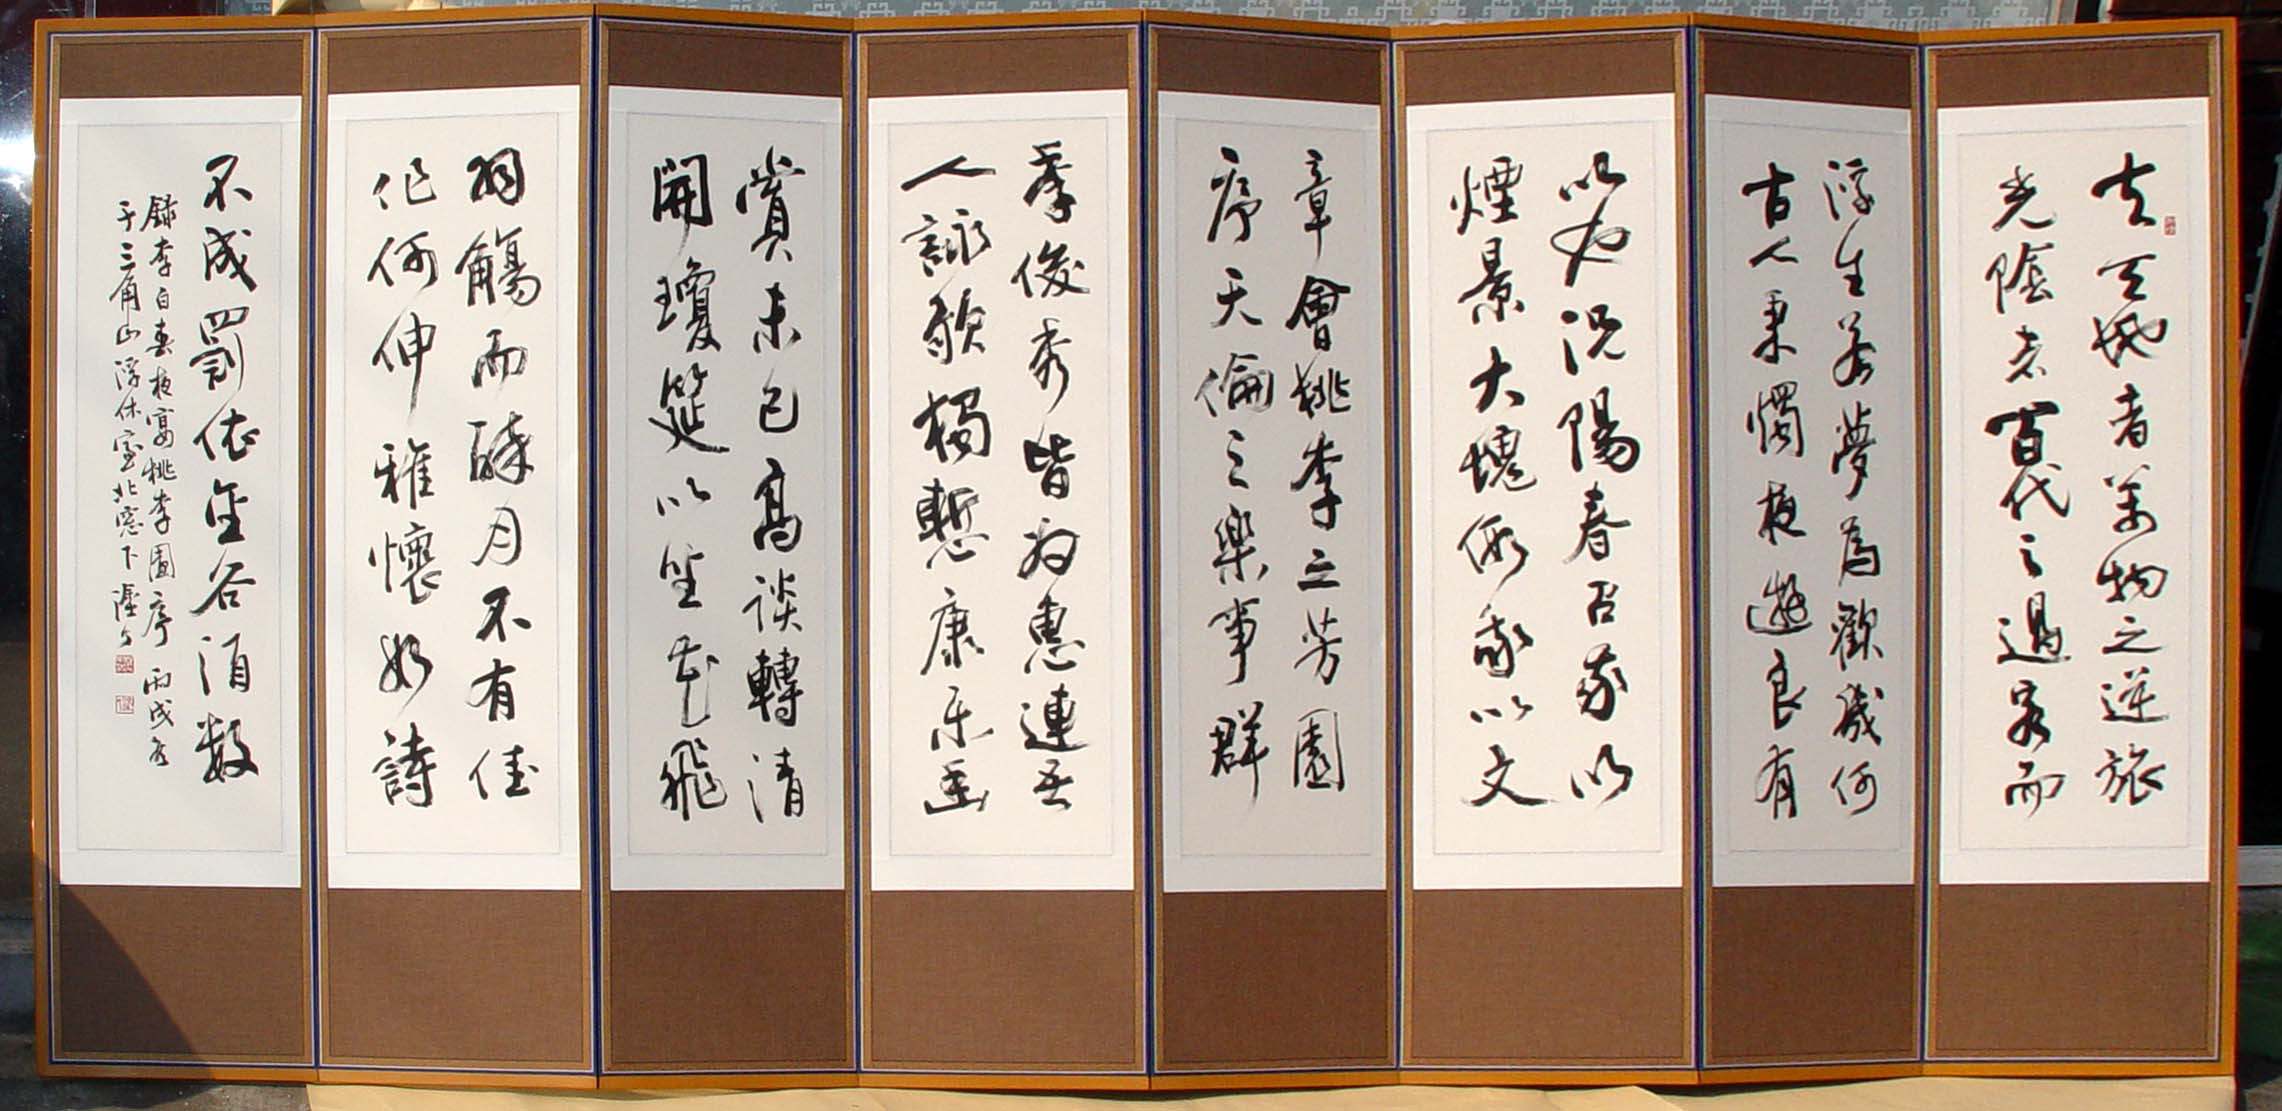 夫天地者萬物之逆旅
光陰者百代之過客而
浮生若夢為歡幾何
古人秉燭夜遊良有
以也況陽春召我以
煙景大塊假我以文
章會桃李之芳園
序天倫之樂事群
季俊秀皆為惠連吾
人詠歌獨慙康樂幽
賞未已高談轉清
開瓊筵以坐花飛
羽觴而醉月不有佳
作何伸雅懷如詩
不成罰依金谷酒數
錄李白春夜宴桃李園序 丙戌冬
于三角山浮休室北窓下